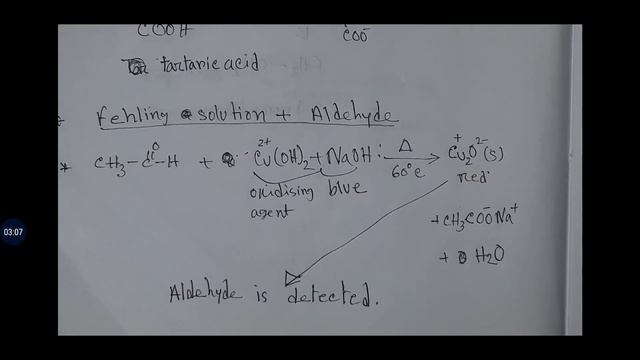 COOH COO⁻
tartaric acid
Fehling solution + Aldehyde
* CH₃-C-H + Cu²⁺(OH)₂ + NaOH : Δ 60°C Cu₂⁺O²⁻(s)
O
oxidising blue red
agent
+ CH₃COO⁻Na⁺
+ H₂O
Aldehyde is detected.
03:07